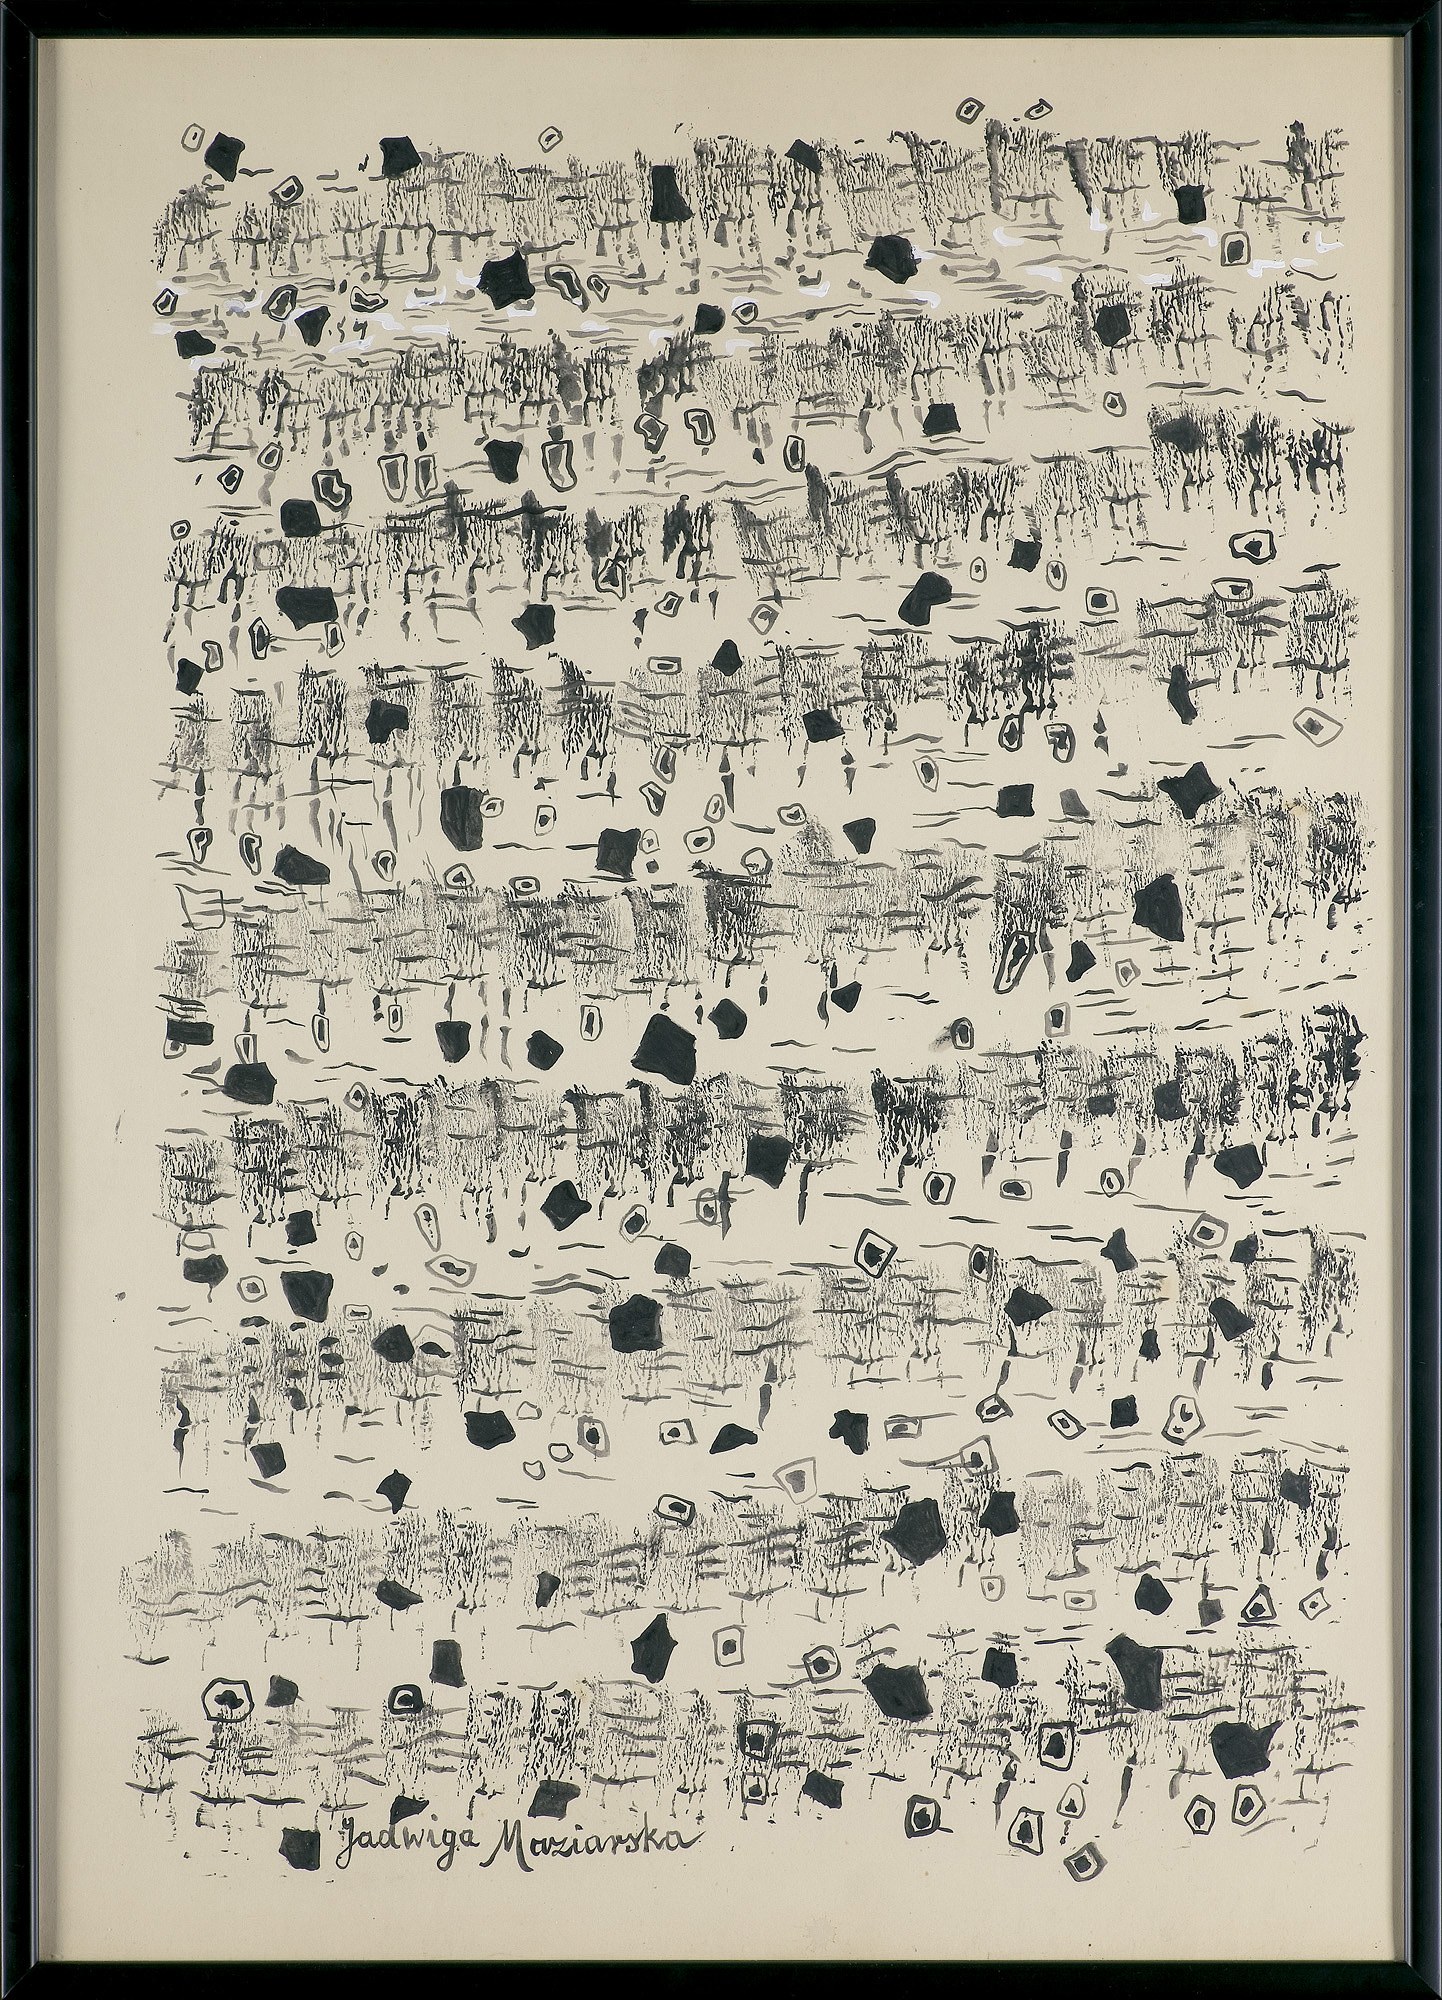 Jadwiga Maziarska